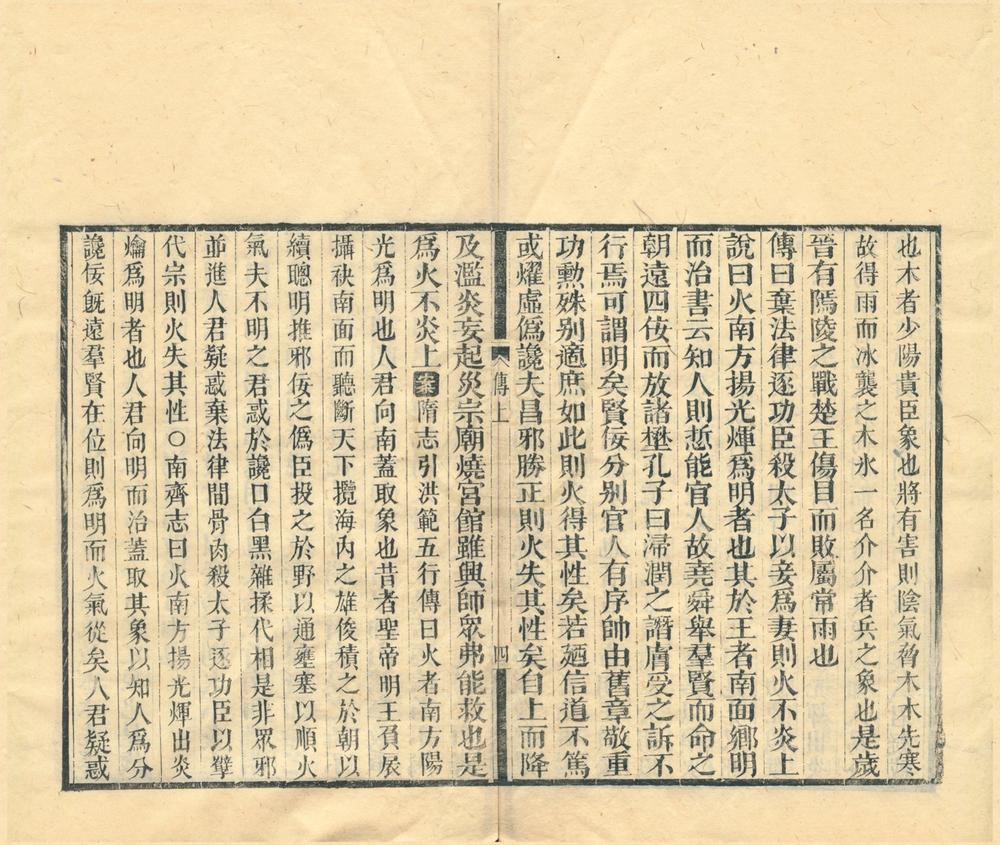 也木者少陽貴臣象也將有害則陰氣脅木木先寒
故得雨而冰襲之木氷一名介介者兵之象也是歲
晉有鄢陵之戰楚王傷目而敗屬常雨也
傳曰棄法律逐功臣殺太子以妾爲妻則火不炎上
說曰火南方揚光煇爲明者也其於王者南面鄉明
而治書云知人則悊能官人故堯舜舉羣賢而命之
朝遠四佞而放諸壄孔子曰浸潤之譖膚受之訴不
行焉可謂明矣賢佞分別官人有序帥由舊章敬重
功勳殊別適庶如此則火得其性矣若廼信道不篤
或燿虛僞讒夫昌邪勝正則火失其性矣自上而降
傳上
四
及濫炎妄起災宗廟燒宮館雖興師眾弗能救也是
爲火不炎上案隋志引洪範五行傳曰火者南方陽
光爲明也人君向南蓋取象也昔者聖帝明王負扆
攝袂南面而聽斷天下攬海內之雄俊積之於朝以
續聰明推邪佞之僞臣投之於野以通壅塞以順火
氣夫不明之君惑於讒口白黑雜揉代相是非眾邪
並進人君疑惑棄法律間骨肉殺太子逐功臣以孽
代宗則火失其性○南齊志曰火南方揚光輝出炎
爚爲明者也人君向明而治蓋取其象以知人爲分
讒佞旣遠羣賢在位則爲明而火氣從矣人君疑惑